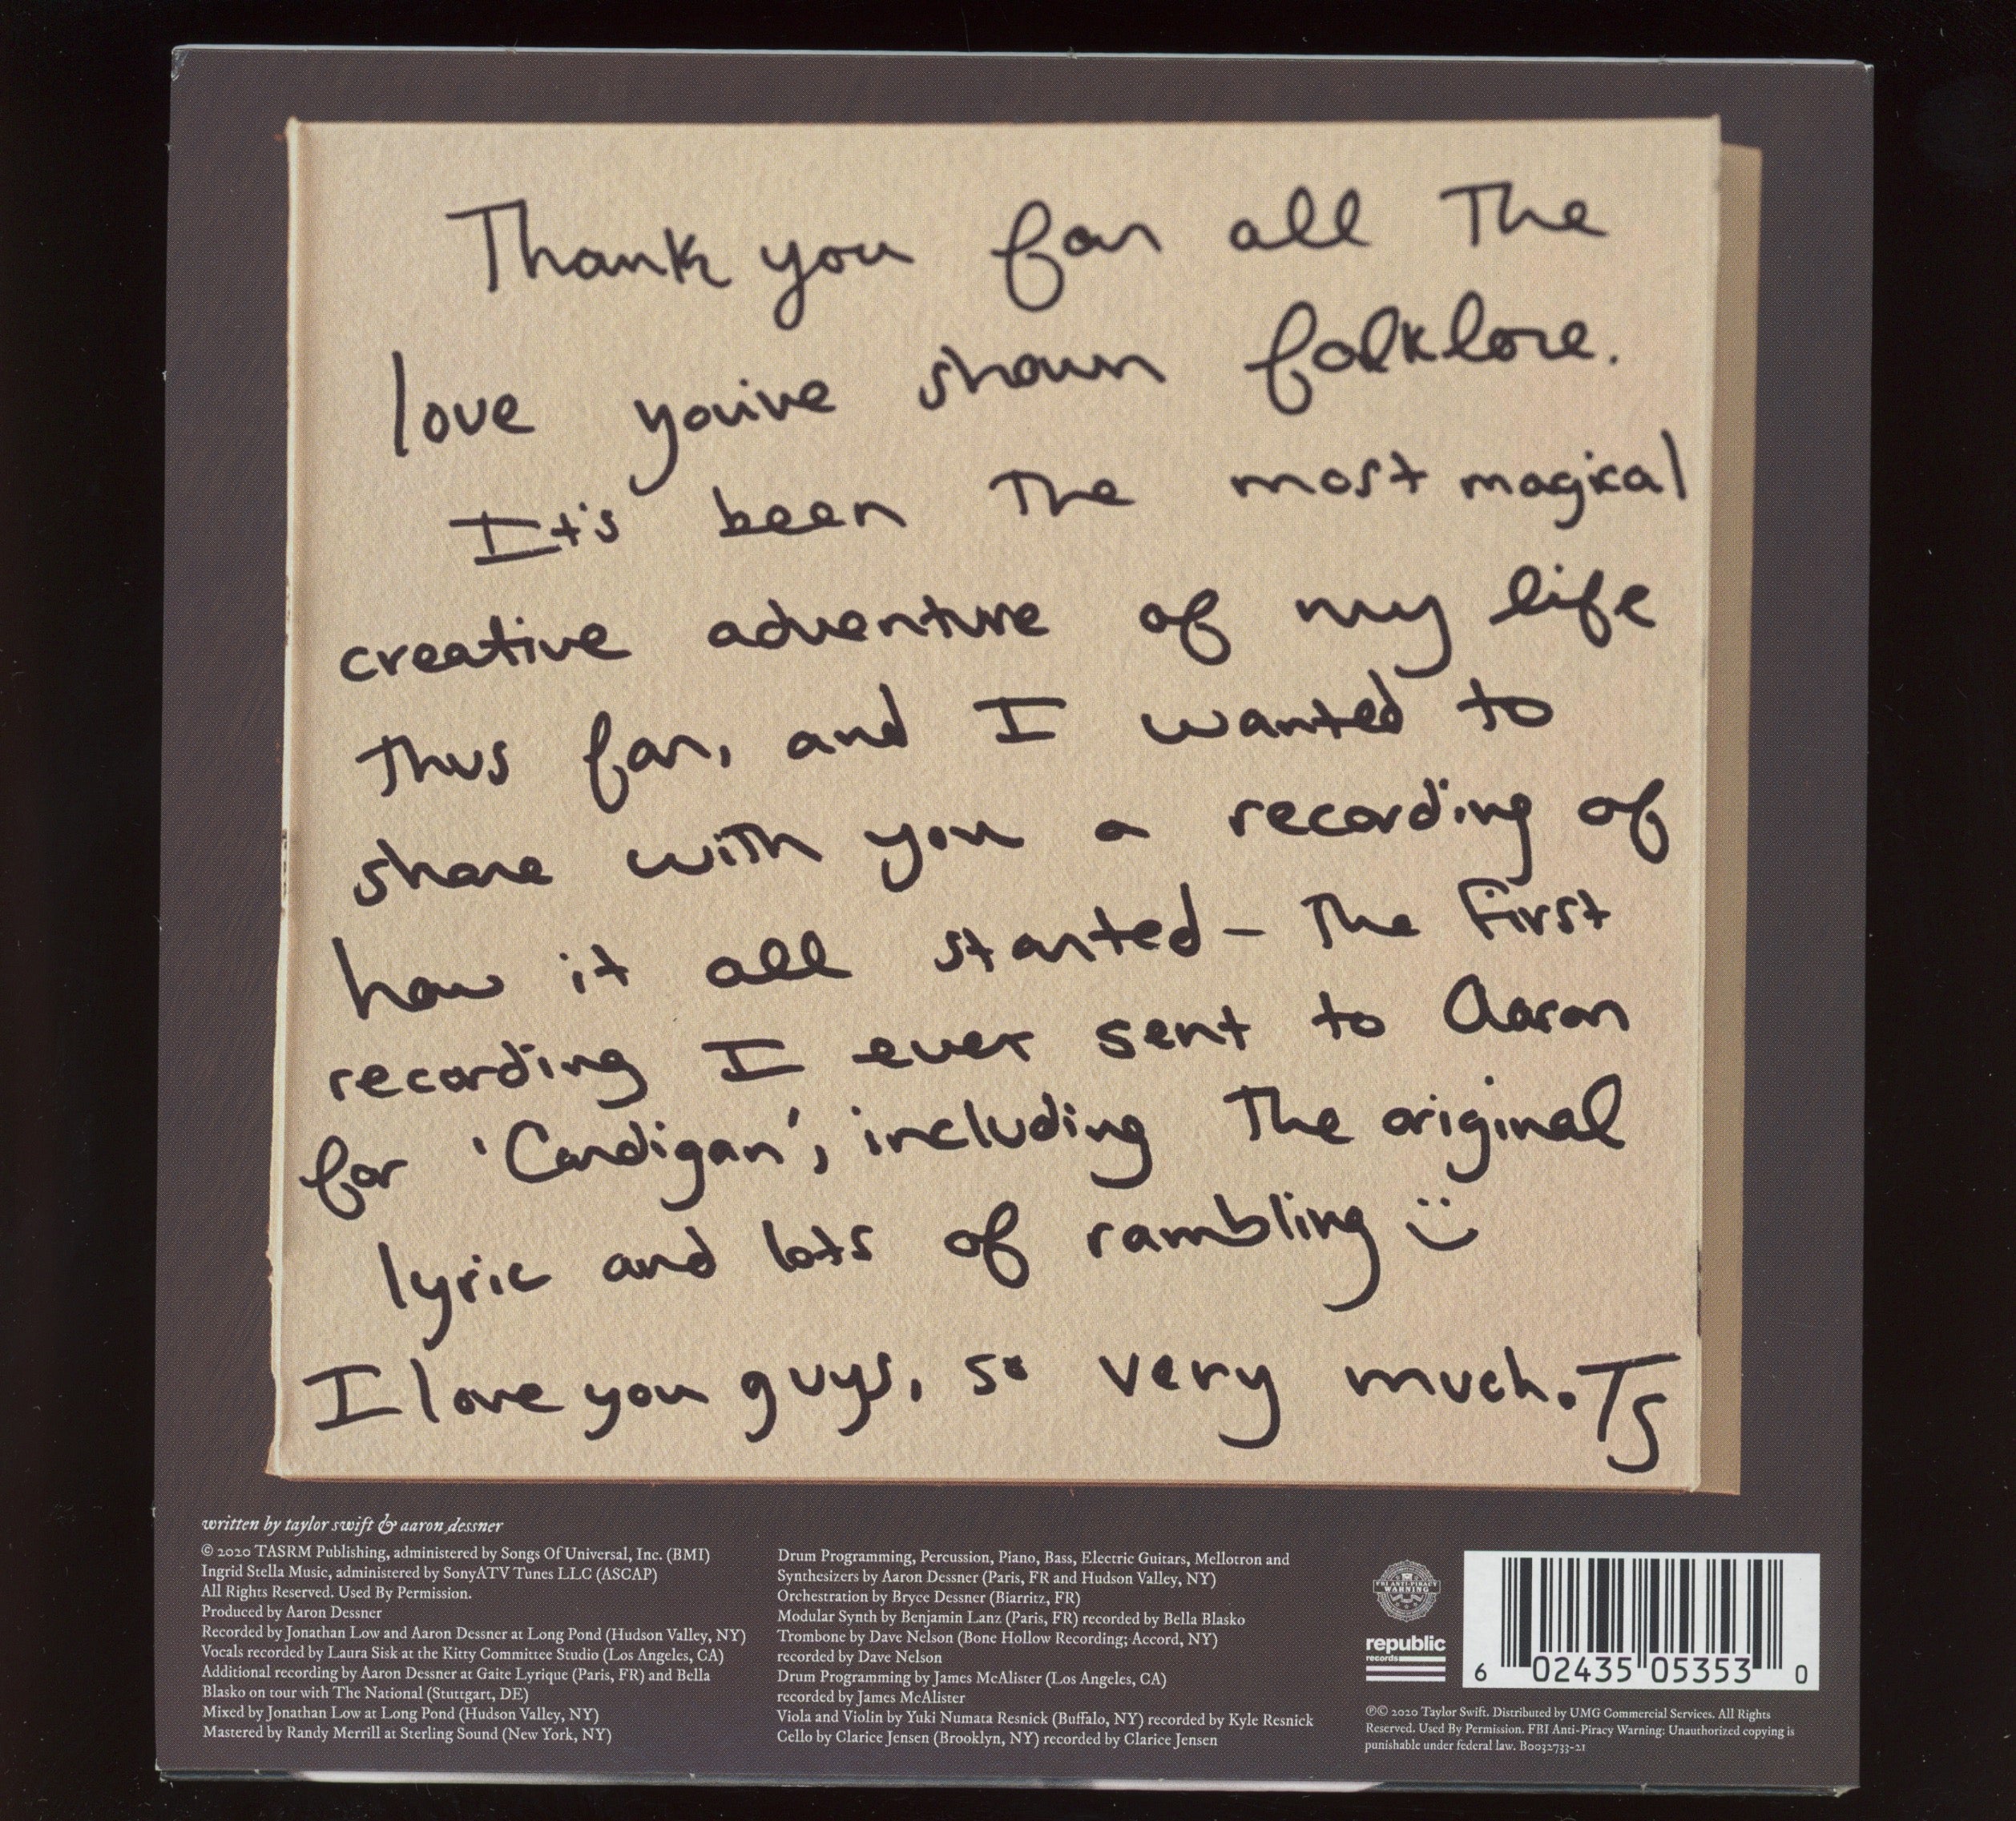 Thank you for all the
love you've shown folklore.
It's been the most magical
creative adventure of my life
thus far, and I wanted to
share with you a recording of
how it all started - the first
recording I ever sent to Aaron
for 'Cardigan', including the original
lyric and lots of rambling :)
I love you guys, so very much. TS
written by taylor swift & aaron dessner
© 2020 TASRM Publishing, administered by Songs Of Universal, Inc. (BMI)
Ingrid Stella Music, administered by SonyATV Tunes LLC (ASCAP)
All Rights Reserved. Used By Permission.
Produced by Aaron Dessner
Recorded by Jonathan Low and Aaron Dessner at Long Pond (Hudson Valley, NY)
Vocals recorded by Laura Sisk at the Kitty Committee Studio (Los Angeles, CA)
Additional recording by Aaron Dessner at Gaite Lyrique (Paris, FR) and Bella
Blasko on tour with The National (Stuttgart, DE)
Mixed by Jonathan Low at Long Pond (Hudson Valley, NY)
Mastered by Randy Merrill at Sterling Sound (New York, NY)
Drum Programming, Percussion, Piano, Bass, Electric Guitars, Mellotron and
Synthesizers by Aaron Dessner (Paris, FR and Hudson Valley, NY)
Orchestration by Bryce Dessner (Biarritz, FR)
Modular Synth by Benjamin Lanz (Paris, FR) recorded by Bella Blasko
Trombone by Dave Nelson (Bone Hollow Recording; Accord, NY)
recorded by Dave Nelson
Drum Programming by James McAlister (Los Angeles, CA)
recorded by James McAlister
Viola and Violin by Yuki Numata Resnick (Buffalo, NY) recorded by Kyle Resnick
Cello by Clarice Jensen (Brooklyn, NY) recorded by Clarice Jensen
FBI ANTI-PIRACY
WARNING
republic
records
6 02435 05353 0
℗© 2020 Taylor Swift. Distributed by UMG Commercial Services. All Rights
Reserved. Used By Permission. FBI Anti-Piracy Warning: Unauthorized copying is
punishable under federal law. B0032733-21